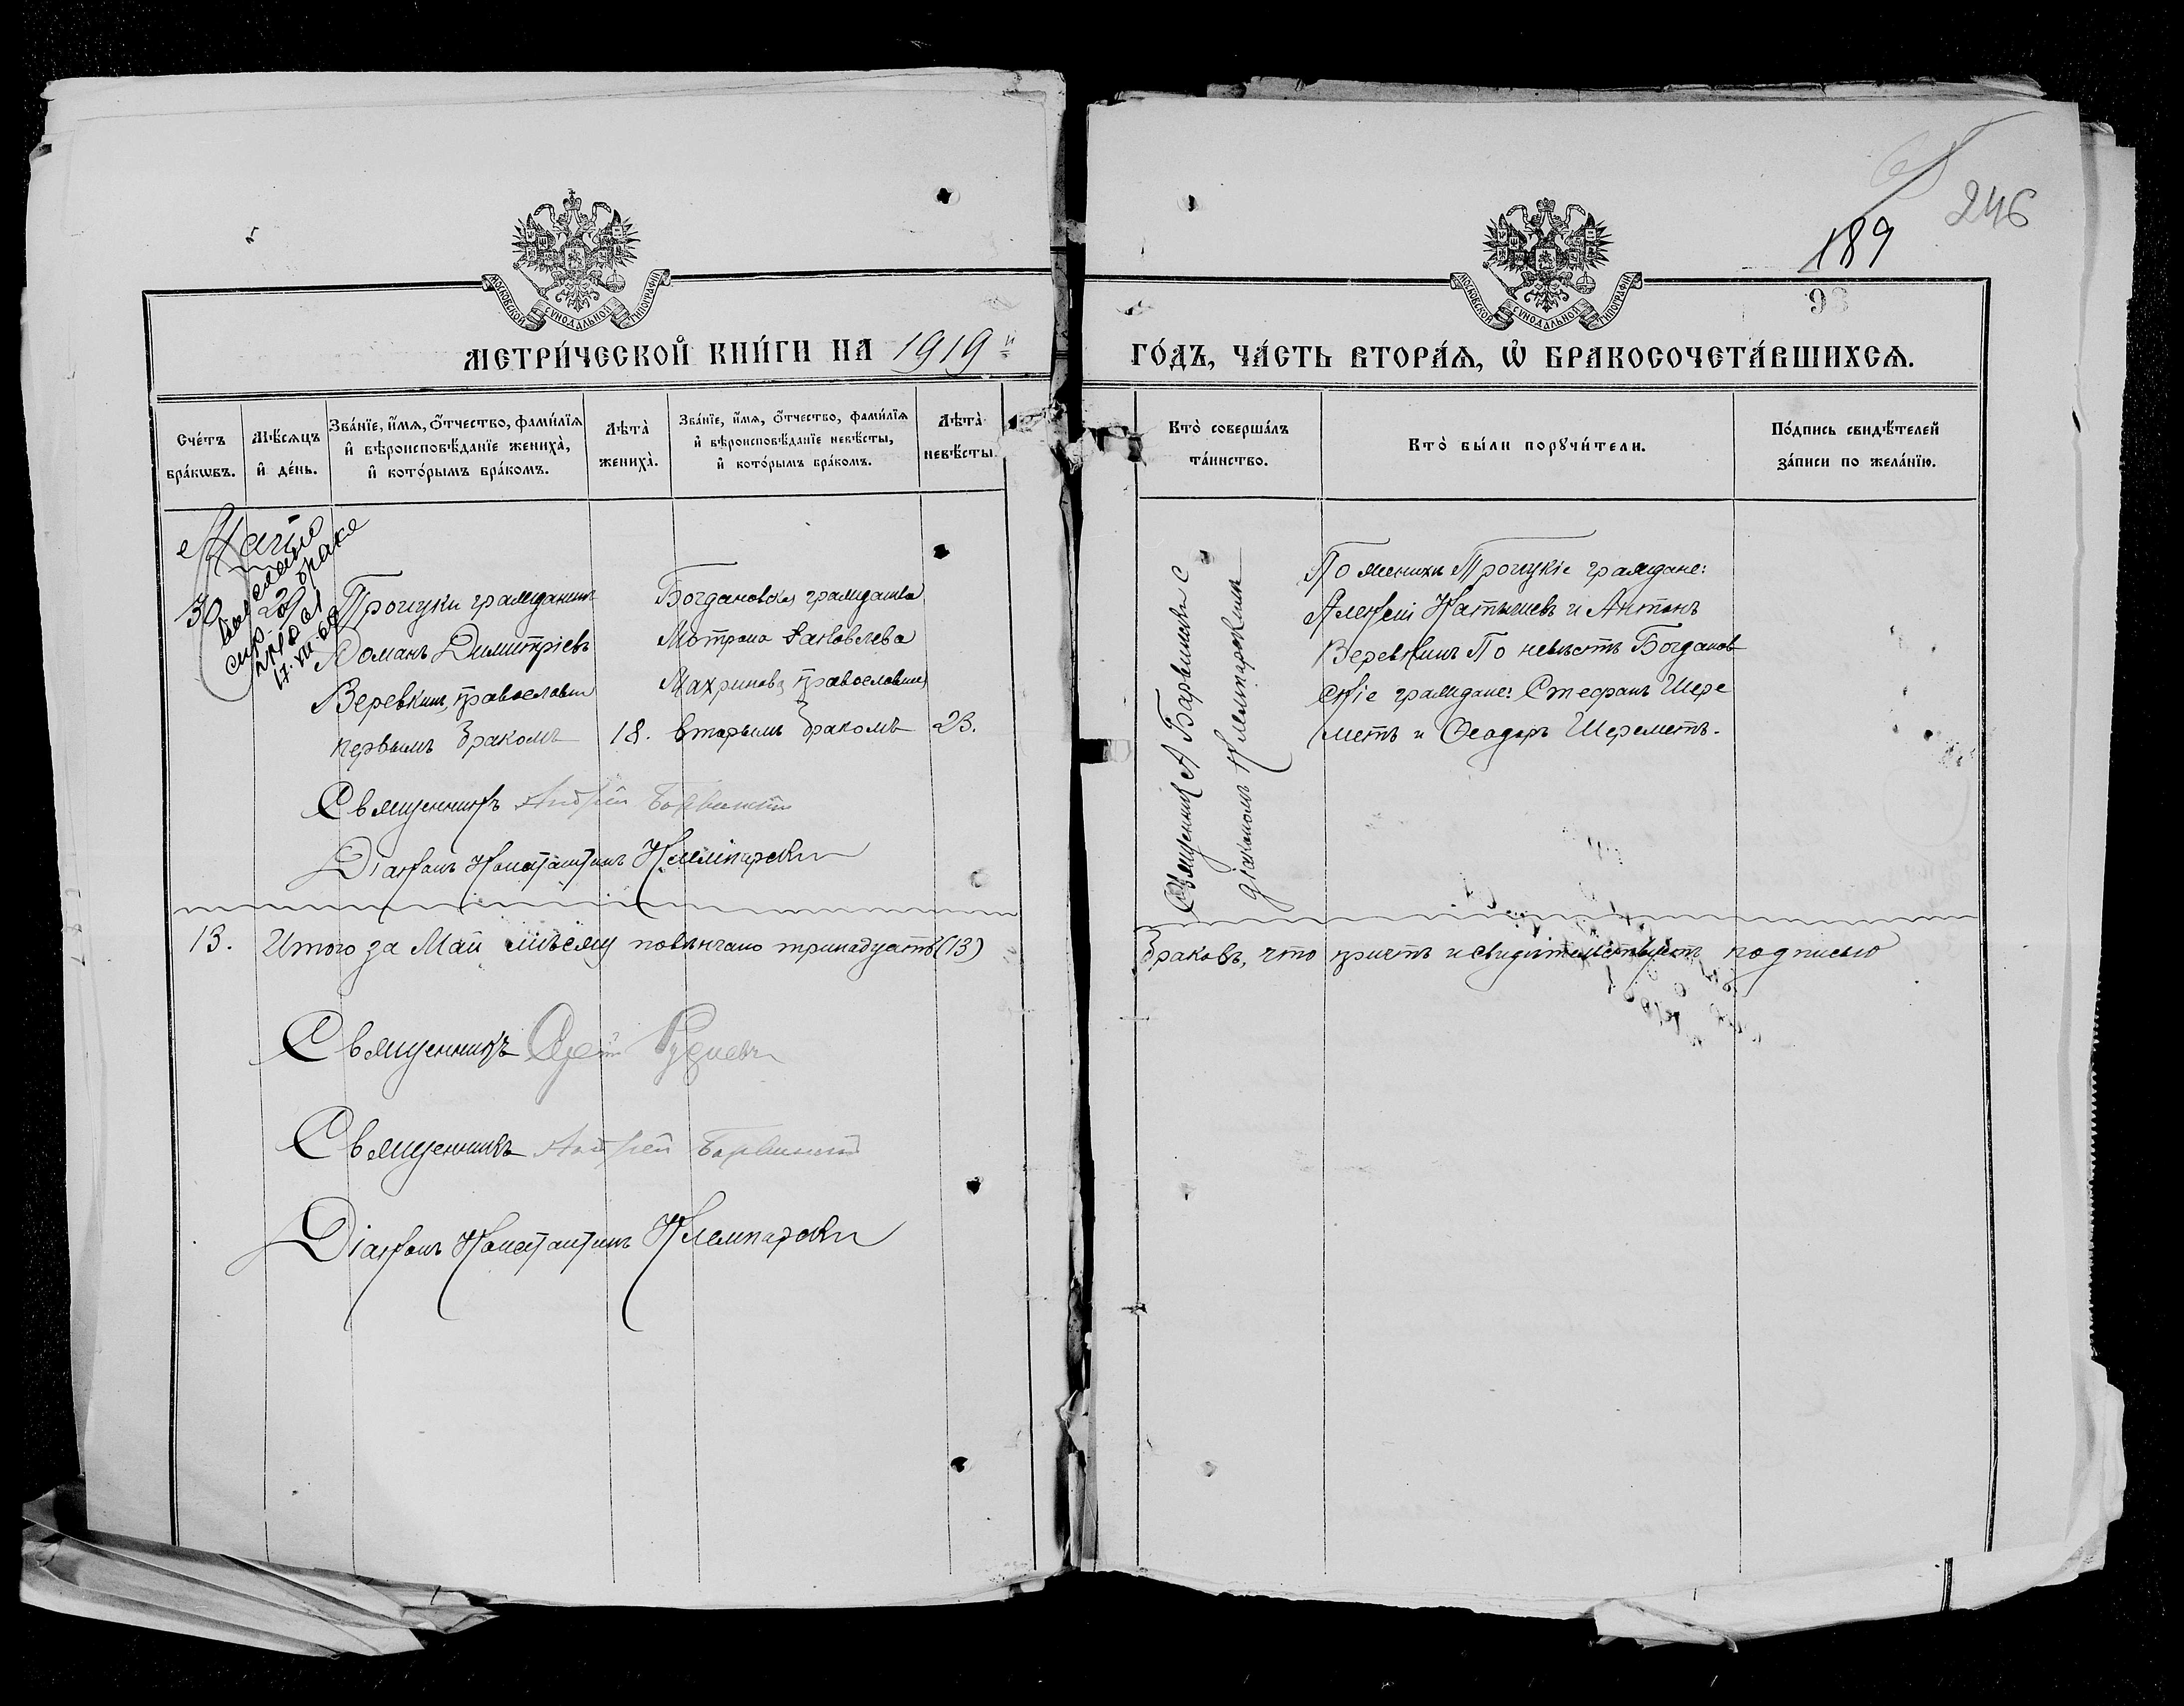 246
189
93
МОСКОВСКОЙ СѴНОДАЛЬНОЙ ТИПОГРАФІИ
МОСКОВСКОЙ СѴНОДАЛЬНОЙ ТИПОГРАФІИ
МЕТРИ́ЧЕСКОЙ КНИ́ГИ НА 1919 й ГО́ДЪ, ЧА́СТЬ ВТОРА́Ѧ, Ѡ҆ БРАКОСОЧЕТА́ВШИХСѦ.
Сче́тъ бра́кѡвъ.
Мѣ́сѧцъ и҆ де́нь.
Зва́нїе, и҆́мѧ, о҆́тчество, фами́лїѧ и҆ вѣроисповѣ́данїе жениха̀, и҆ кото́рымъ бра́комъ.
Лѣта̀ жениха̀.
Зва́нїе, и҆́мѧ, о҆́тчество, фами́лїѧ и҆ вѣроисповѣ́данїе невѣ́сты, и҆ кото́рымъ бра́комъ.
Лѣта̀ невѣ́сты.
Кто̀ соверша́лъ та́инство.
Кто̀ бы́ли порꙋчи́тели.
По́дпись свидѣ́телей за́писи по жела́нїю.
30
браке
17. VII.
Троицкій гражданинъ
Романъ Димитріевъ
Веревкинъ, православн
первымъ бракомъ
18.
Богдановская гражданка
Мотрона Яковлева
Махринова, православная
вторымъ бракомъ
23.
Священникъ А Барвинскій с
діакономъ Клемпарскимъ
По женихѣ Троицкіе граждане:
Алексѣй Катышевъ и Антонъ
Веревкинъ По невѣстѣ Богданов
скіе граждане: Стефанъ Шере
метъ и Ѳеодоръ Шереметъ.
Священникъ Андрей Барвинскій
Діаконъ Константинъ Клемпарскій
13. Итого за Май мѣсяцъ повѣнчано тринадцать (13) браковъ, что причтъ и свидѣтельствуетъ подписью
Священникъ
Священникъ Андрей Барвинскій
Діаконъ Константинъ Клемпарскій